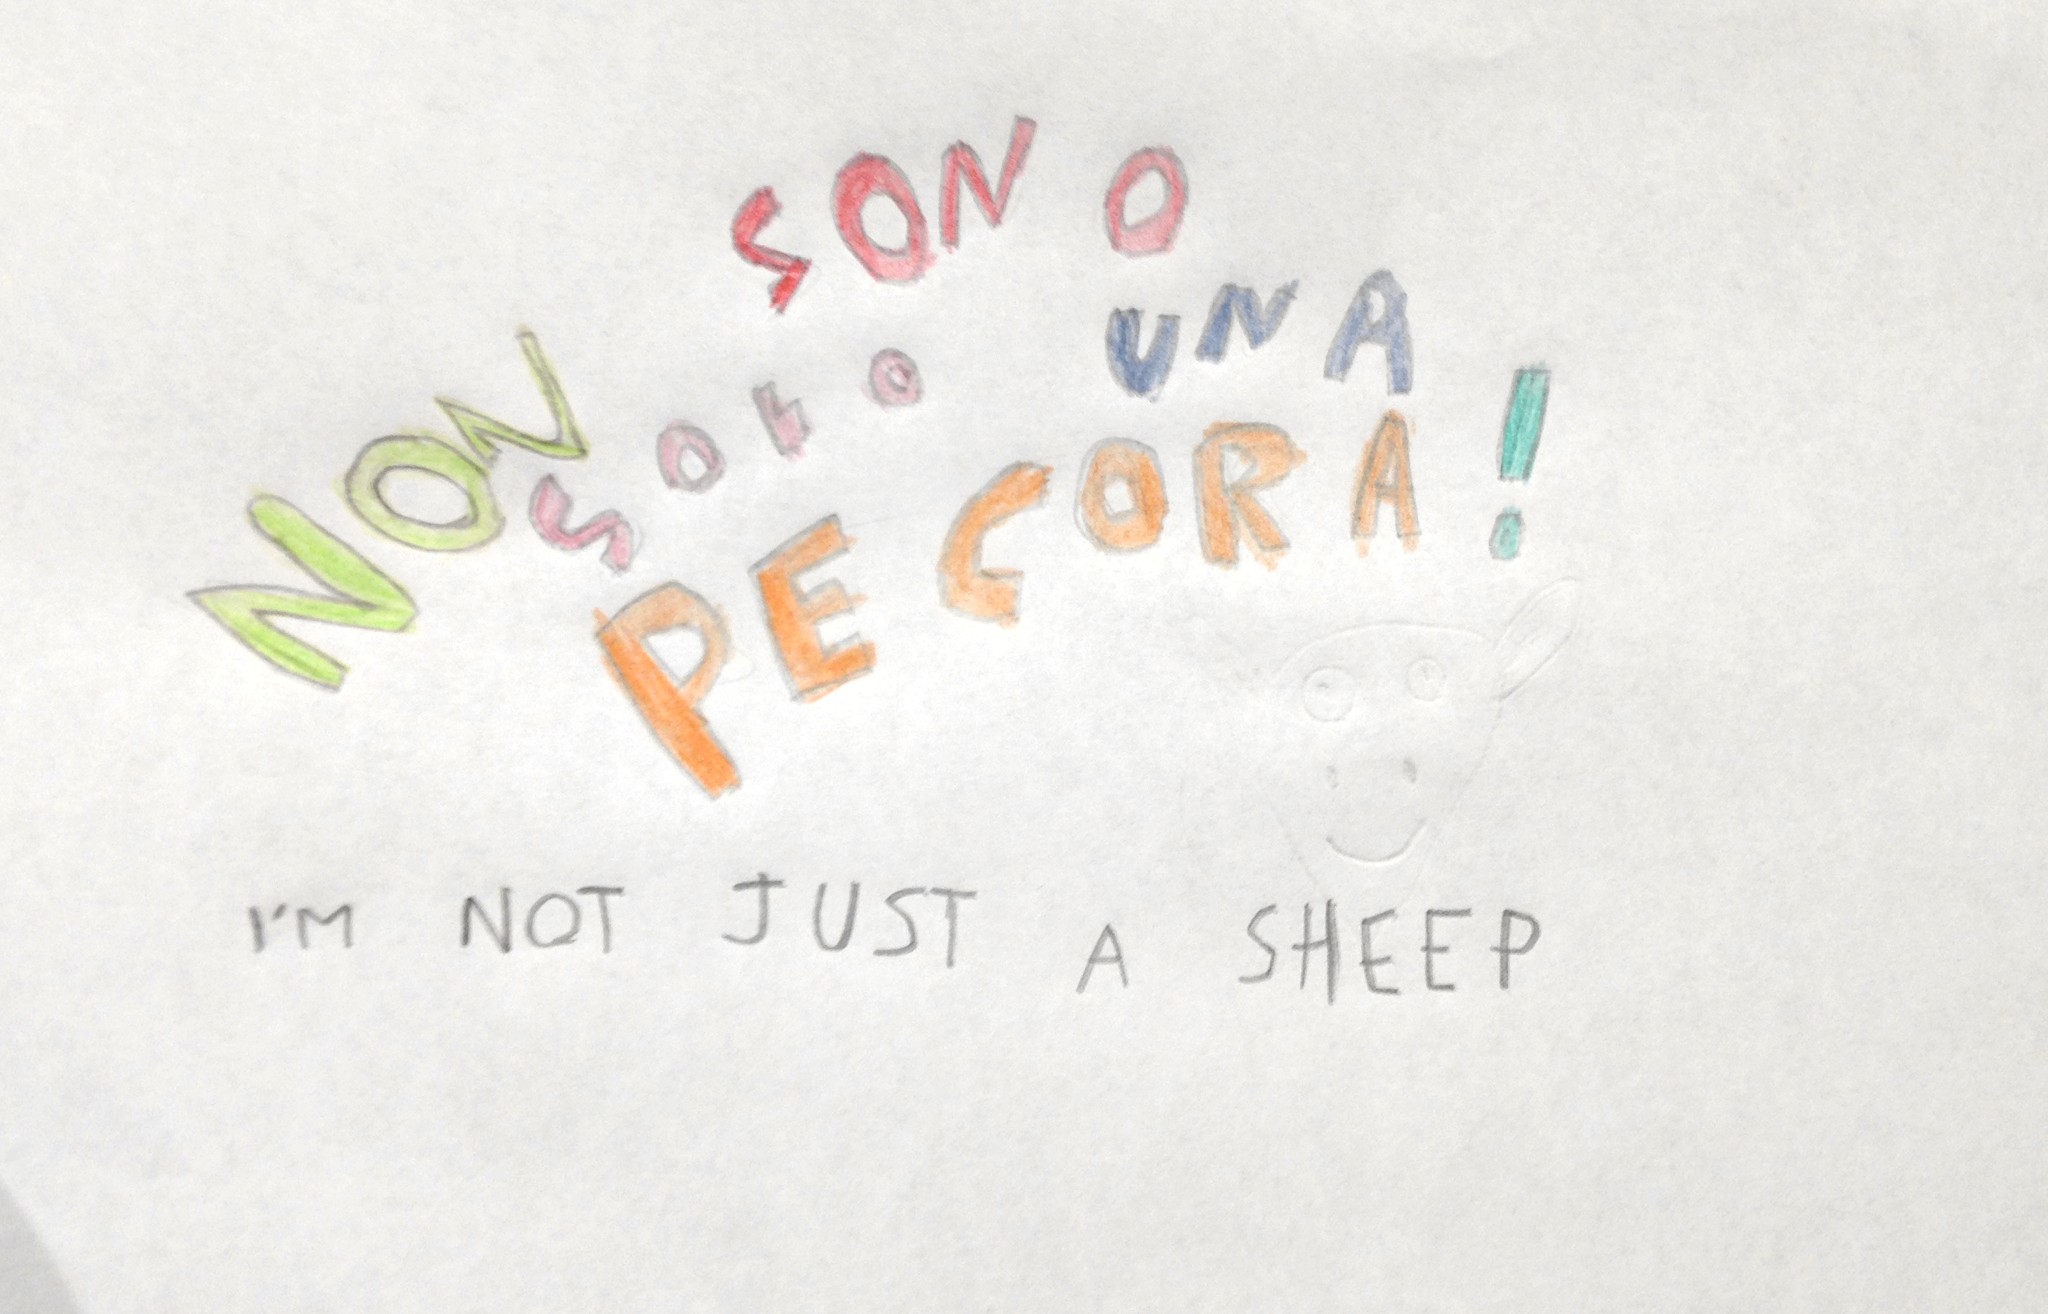 NON SONO
SOLO UNA
PECORA!
I'M NOT JUST A SHEEP